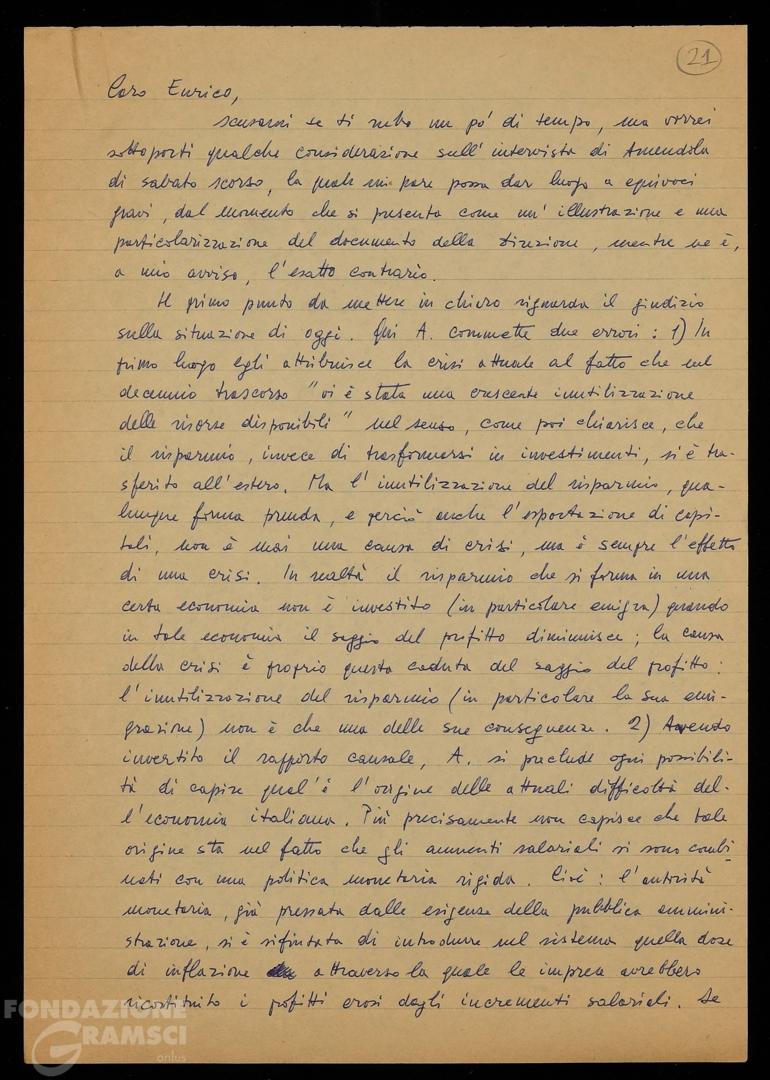 21
Caro Enrico,
scusami se ti rubo un pò di tempo, ma vorrei
sottoporti qualche considerazione sull'intervista di Amendola
di sabato scorso, la quale mi pare possa dar luogo a equivoci
gravi, dal momento che si presenta come un'illustrazione e una
particolarizzazione del documento della Direzione, mentre ne è,
a mio avviso, l'esatto contrario.
Il primo punto da mettere in chiaro riguarda il giudizio
sulla situazione di oggi. Qui A. commette due errori: 1) In
primo luogo egli attribuisce la crisi attuale al fatto che nel
decennio trascorso "vi è stata una crescente inutilizzazione
delle risorse disponibili" nel senso, come poi chiarisce, che
il risparmio, invece di trasformarsi in investimenti, si è tra-
sferito all'estero. Ma l'inutilizzazione del risparmio, qua-
lunque forma prenda, e perciò anche l'esportazione di capi-
tali, non è mai una causa di crisi, ma è sempre l'effetto
di una crisi. In realtà il risparmio che si forma in una
certa economia non è investito (in particolare emigra) quando
in tale economia il saggio del profitto diminuisce; la causa
della crisi è proprio questa caduta del saggio del profitto:
l'inutilizzazione del risparmio (in particolare la sua emi-
grazione) non è che una delle sue conseguenze. 2) Avendo
invertito il rapporto causale, A. si preclude ogni possibili-
tà di capire qual'è l'origine delle attuali difficoltà del-
l'economia italiana. Più precisamente non capisce che tale
origine sta nel fatto che gli aumenti salariali si sono combi-
nati con una politica monetaria rigida. Cioè: l'autorità
monetaria, già pressata dalle esigenze della pubblica ammini-
strazione, si è rifiutata di introdurre nel sistema quella dose
di inflazione attraverso la quale le imprese avrebbero
ricostituito i profitti erosi dagli incrementi salariali. Se
FONDAZIONE
GRAMSCI
onlus